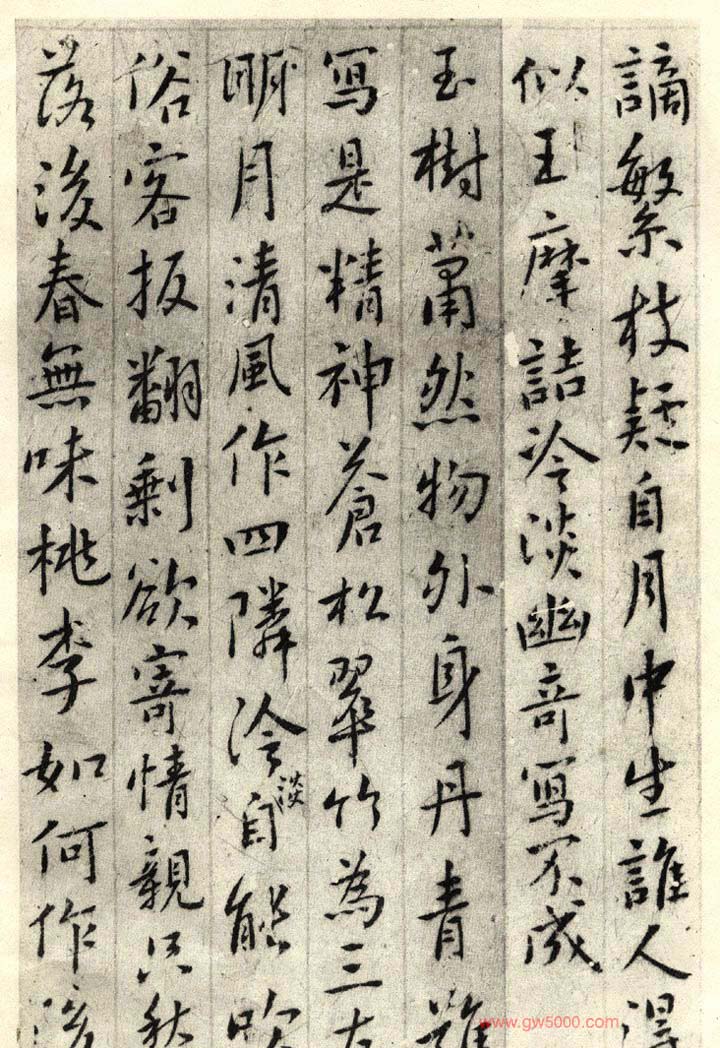 謫繁枝疑自月中生誰人得
似王摩詰冷淡幽奇寫不成
玉樹蕭然物外身丹青難
寫是精神蒼松翠竹為三友
明月清風作四隣冷淡自能
俗客扳翻剩欲寄情親只
落後春無味桃李如何作
www.gw5000.com